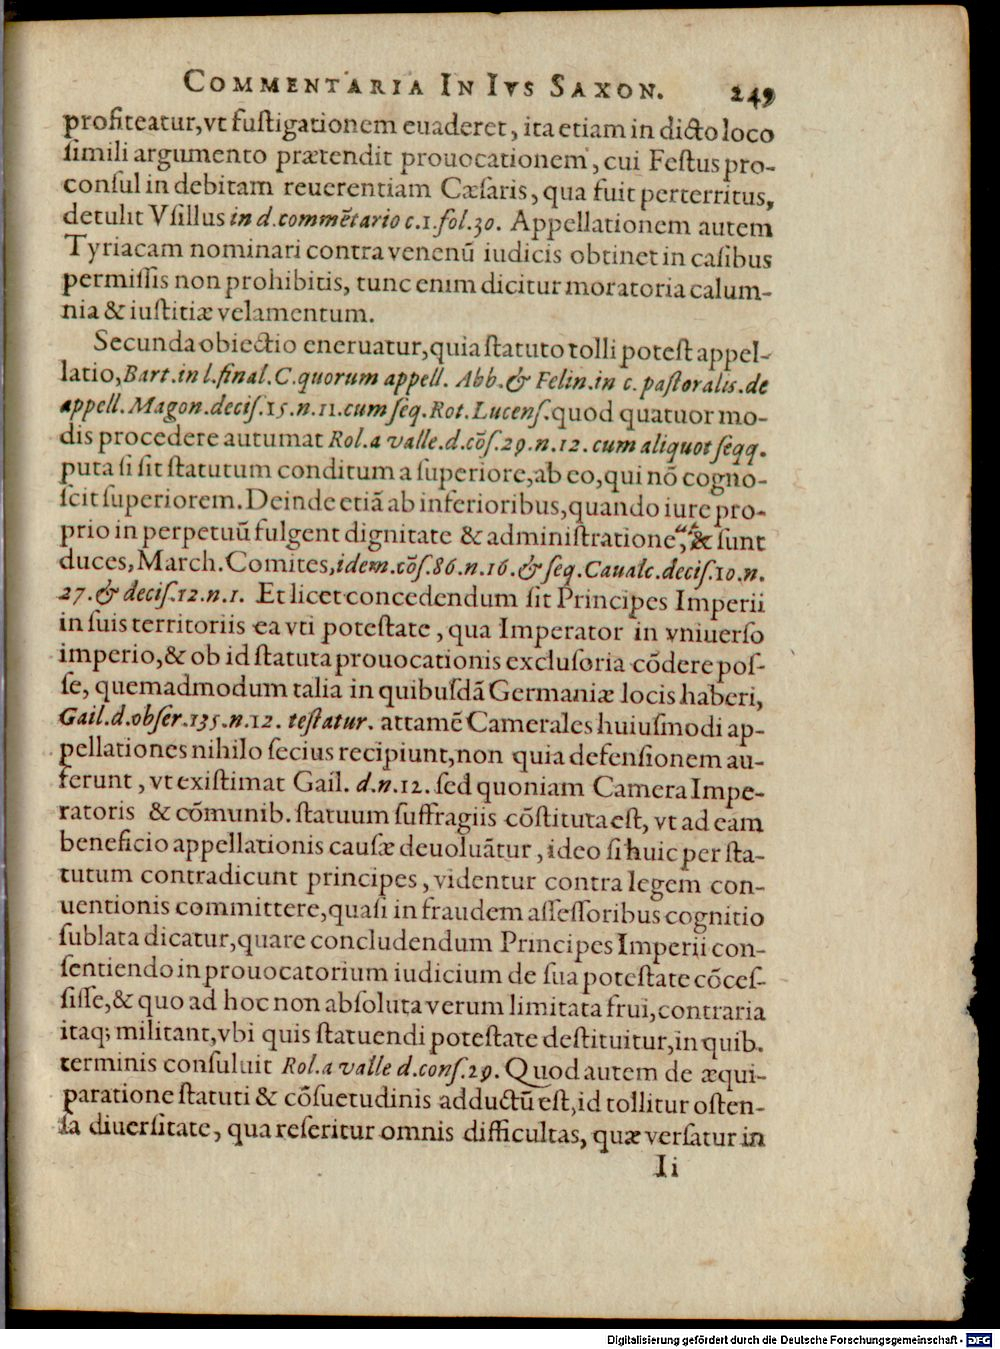 COMMENTARIA IN IVS SAXON. 249
profiteatur,vt fuſtigationem euaderet, ita etiam in dicto loco
ſimili argumento prætendit prouocationem, cui Feſtus pro-
conſul in debitam reuerentiam Cæſaris, qua fuit perterritus,
detulit Vſillus in d. commẽtario c.1. fol.30. Appellationem autem
Tyriacam nominari contra venenũ iudicis obtinet in caſibus
permiſſis non prohibitis, tunc enim dicitur moratoria calum-
nia & iuſtitiæ velamentum.
Secunda obiectio eneruatur, quia ſtatuto tolli poteſt appel-
latio, Bart. in l. final. C. quorum appell. Abb. & Felin. in c. paſtoralis. de
appell. Magon. deciſ. 15. n. 11. cum ſeq. Rot. Lucenſ. quod quatuor mo-
dis procedere autumat Rol. a valle. d. cõſ. 29. n. 12. cum aliquot ſeqq.
puta ſi ſit ſtatutum conditum a ſuperiore, ab eo, qui nõ cogno-
ſcit ſuperiorem. Deinde etiã ab inferioribus, quando iure pro-
prio in perpetuũ fulgent dignitate & adminiſtratione, ut ſunt
duces, March. Comites, idem. cõſ. 86. n. 16. & ſeq. Caualc. deciſ. 10. n.
27. & deciſ. 12. n. 1. Et licet concedendum ſit Principes Imperii
in ſuis territoriis ea vti poteſtate, qua Imperator in vniuerſo
imperio, & ob id ſtatuta prouocationis excluſoria cõdere poſ-
ſe, quemadmodum talia in quibuſdã Germaniæ locis haberi,
Gail. d. obſer. 135. n. 12. teſtatur. attamẽ Camerales huiuſmodi ap-
pellationes nihilo ſecius recipiunt, non quia defenſionem au-
ferunt, vt exiſtimat Gail. d. n. 12. ſed quoniam Camera Impe-
ratoris & cõmunib. ſtatuum ſuffragiis cõſtituta eſt, vt ad eam
beneficio appellationis cauſæ deuoluãtur, ideo ſi huic per ſta-
tutum contradicunt principes, videntur contra legem con-
uentionis committere, quaſi in fraudem aſſeſſoribus cognitio
ſublata dicatur, quare concludendum Principes Imperii con-
ſentiendo in prouocatorium iudicium de ſua poteſtate cõceſ-
ſiſſe, & quo ad hoc non abſoluta verum limitata frui, contraria
itaq; militant, vbi quis ſtatuendi poteſtate deſtituitur, in quib.
terminis conſuluit Rol. a valle d. conſ. 29. Quod autem de æqui-
paratione ſtatuti & cõſuetudinis adductũ eſt, id tollitur oſten-
ſa diuerſitate, qua reſeritur omnis difficultas, quæ verſatur in
Ii
Digitalisierung gefördert durch die Deutsche Forschungsgemeinschaft - DFG